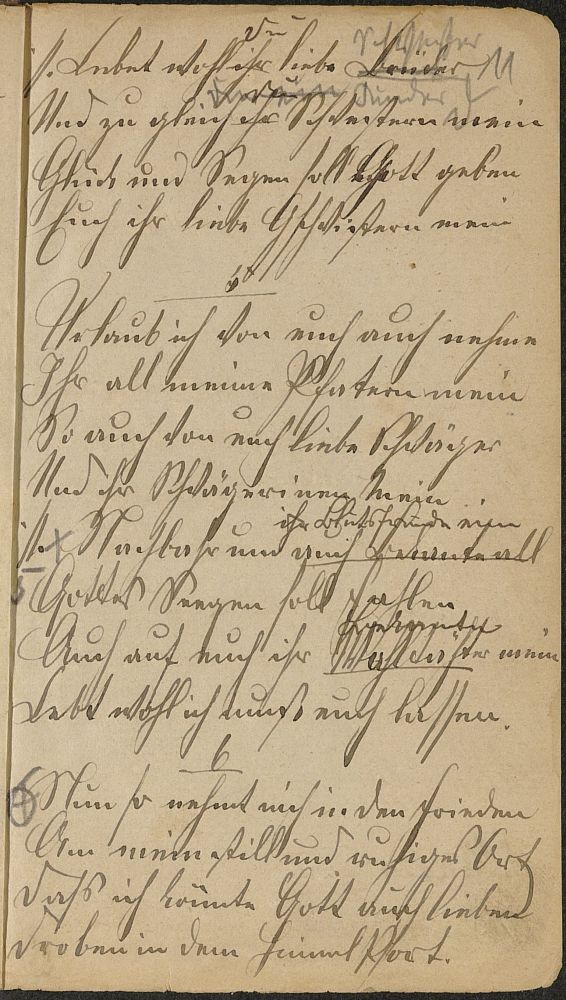 du Schwester
/. Lebet wohl ihr liebe Brüder
Kinder
Und zu gleich ihr Schwestern mein
Glück und Segen soll Gott geben
Euch ihr liebe Gschwistern mein
5
Urlaub ich von euch auch nehme
Ihr all meine Pfatern mein
So auch von euch liebe Schwäger
Und ihr Schwägerinen Mein
ihr Blutsfreunde mein
/. x Nachbahr und auch Bekante all
5 Gottes Seegen soll
Bekante
Auch auf euch ihr mein
Lebt wohl ich muß euch lassen.
6
Nun so nehmt mich in den Frieden
An mein still und ruhiges Ort
Daß ich könnte Gott auch lieben
Droben in dem Himmel Pfort.